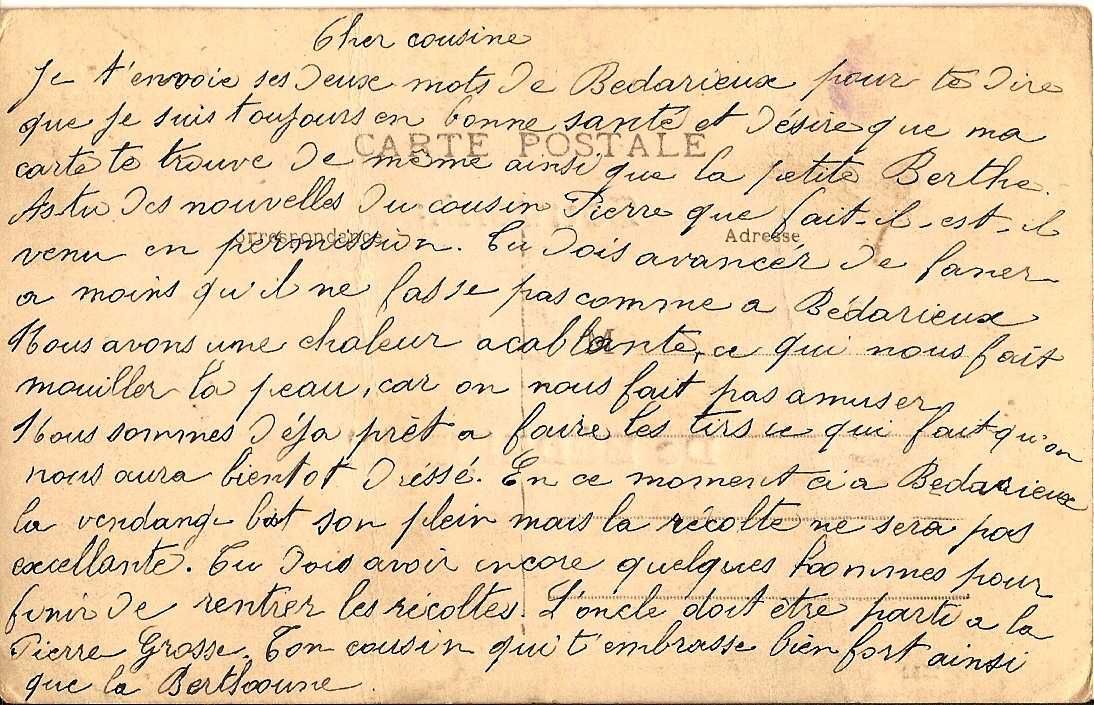 Cher cousine
Je t'envoie ses deux mots de Bedarieux pour te dire
que je suis toujours en bonne santé et désire que ma
CARTE POSTALE
carte te trouve de même ainsi que la petite Berthe.
As tu des nouvelles du cousin Pierre que fait-il-est-il
Correspondance
Adresse
venu en permession. Tu dois avancér de faner
a moins qu'il ne fasse pas comme a Bédarieux
Nous avons une chaleur acablante, ce qui nous fait
mouiller la peau, car on nous fait pas amuser
Nous sommes déja prêt a faire les tirs ce qui fait qu'on
nous aura bientot dréssé. En ce moment ci a Bedarieux
la vendange bat son plein mais la récolte ne sera pas
excellante. Tu dois avoir encore quelques hommes pour
finir de rentrer les récoltes. L'oncle doit etre parti a la
Pierre Grosse. Ton cousin qui t'embrasse bien fort ainsi
que la Berthooune.